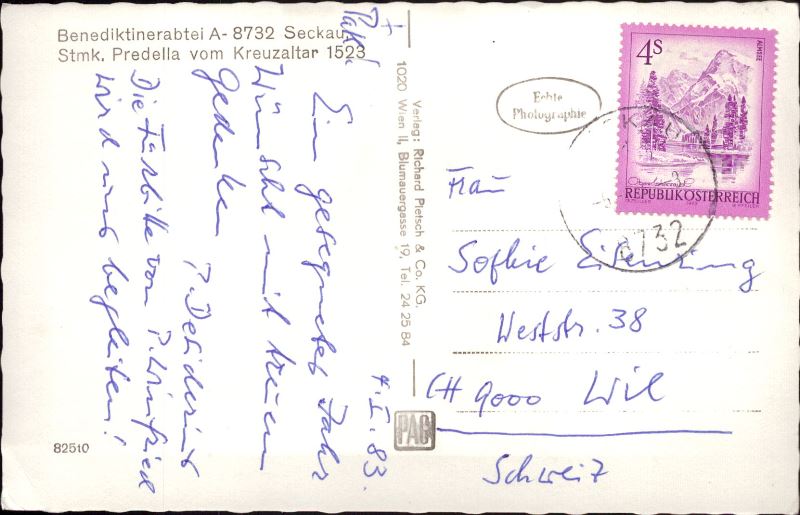 Benediktinerabtei A- 8732 Seckau,
Stmk. Predella vom Kreuzaltar 1523
+
Pax!
4.I.83.
Ein gesegnetes Jahr
Wünscht mit treuem
Gedenken
P. Desiderius
Die Fürbitte von P. Winfried
wird uns begleiten!
82510
Verlag: Richard Pietsch & Co. KG.
1020 Wien II, Blumauergasse 19, Tel. 24 25 84
PAG
Echte
Photographie
4S
ALMSEE
REPUBLIK ÖSTERREICH
8732
Frau
Sofhie
Weststr. 38
CH 9000 Wil
Schweiz